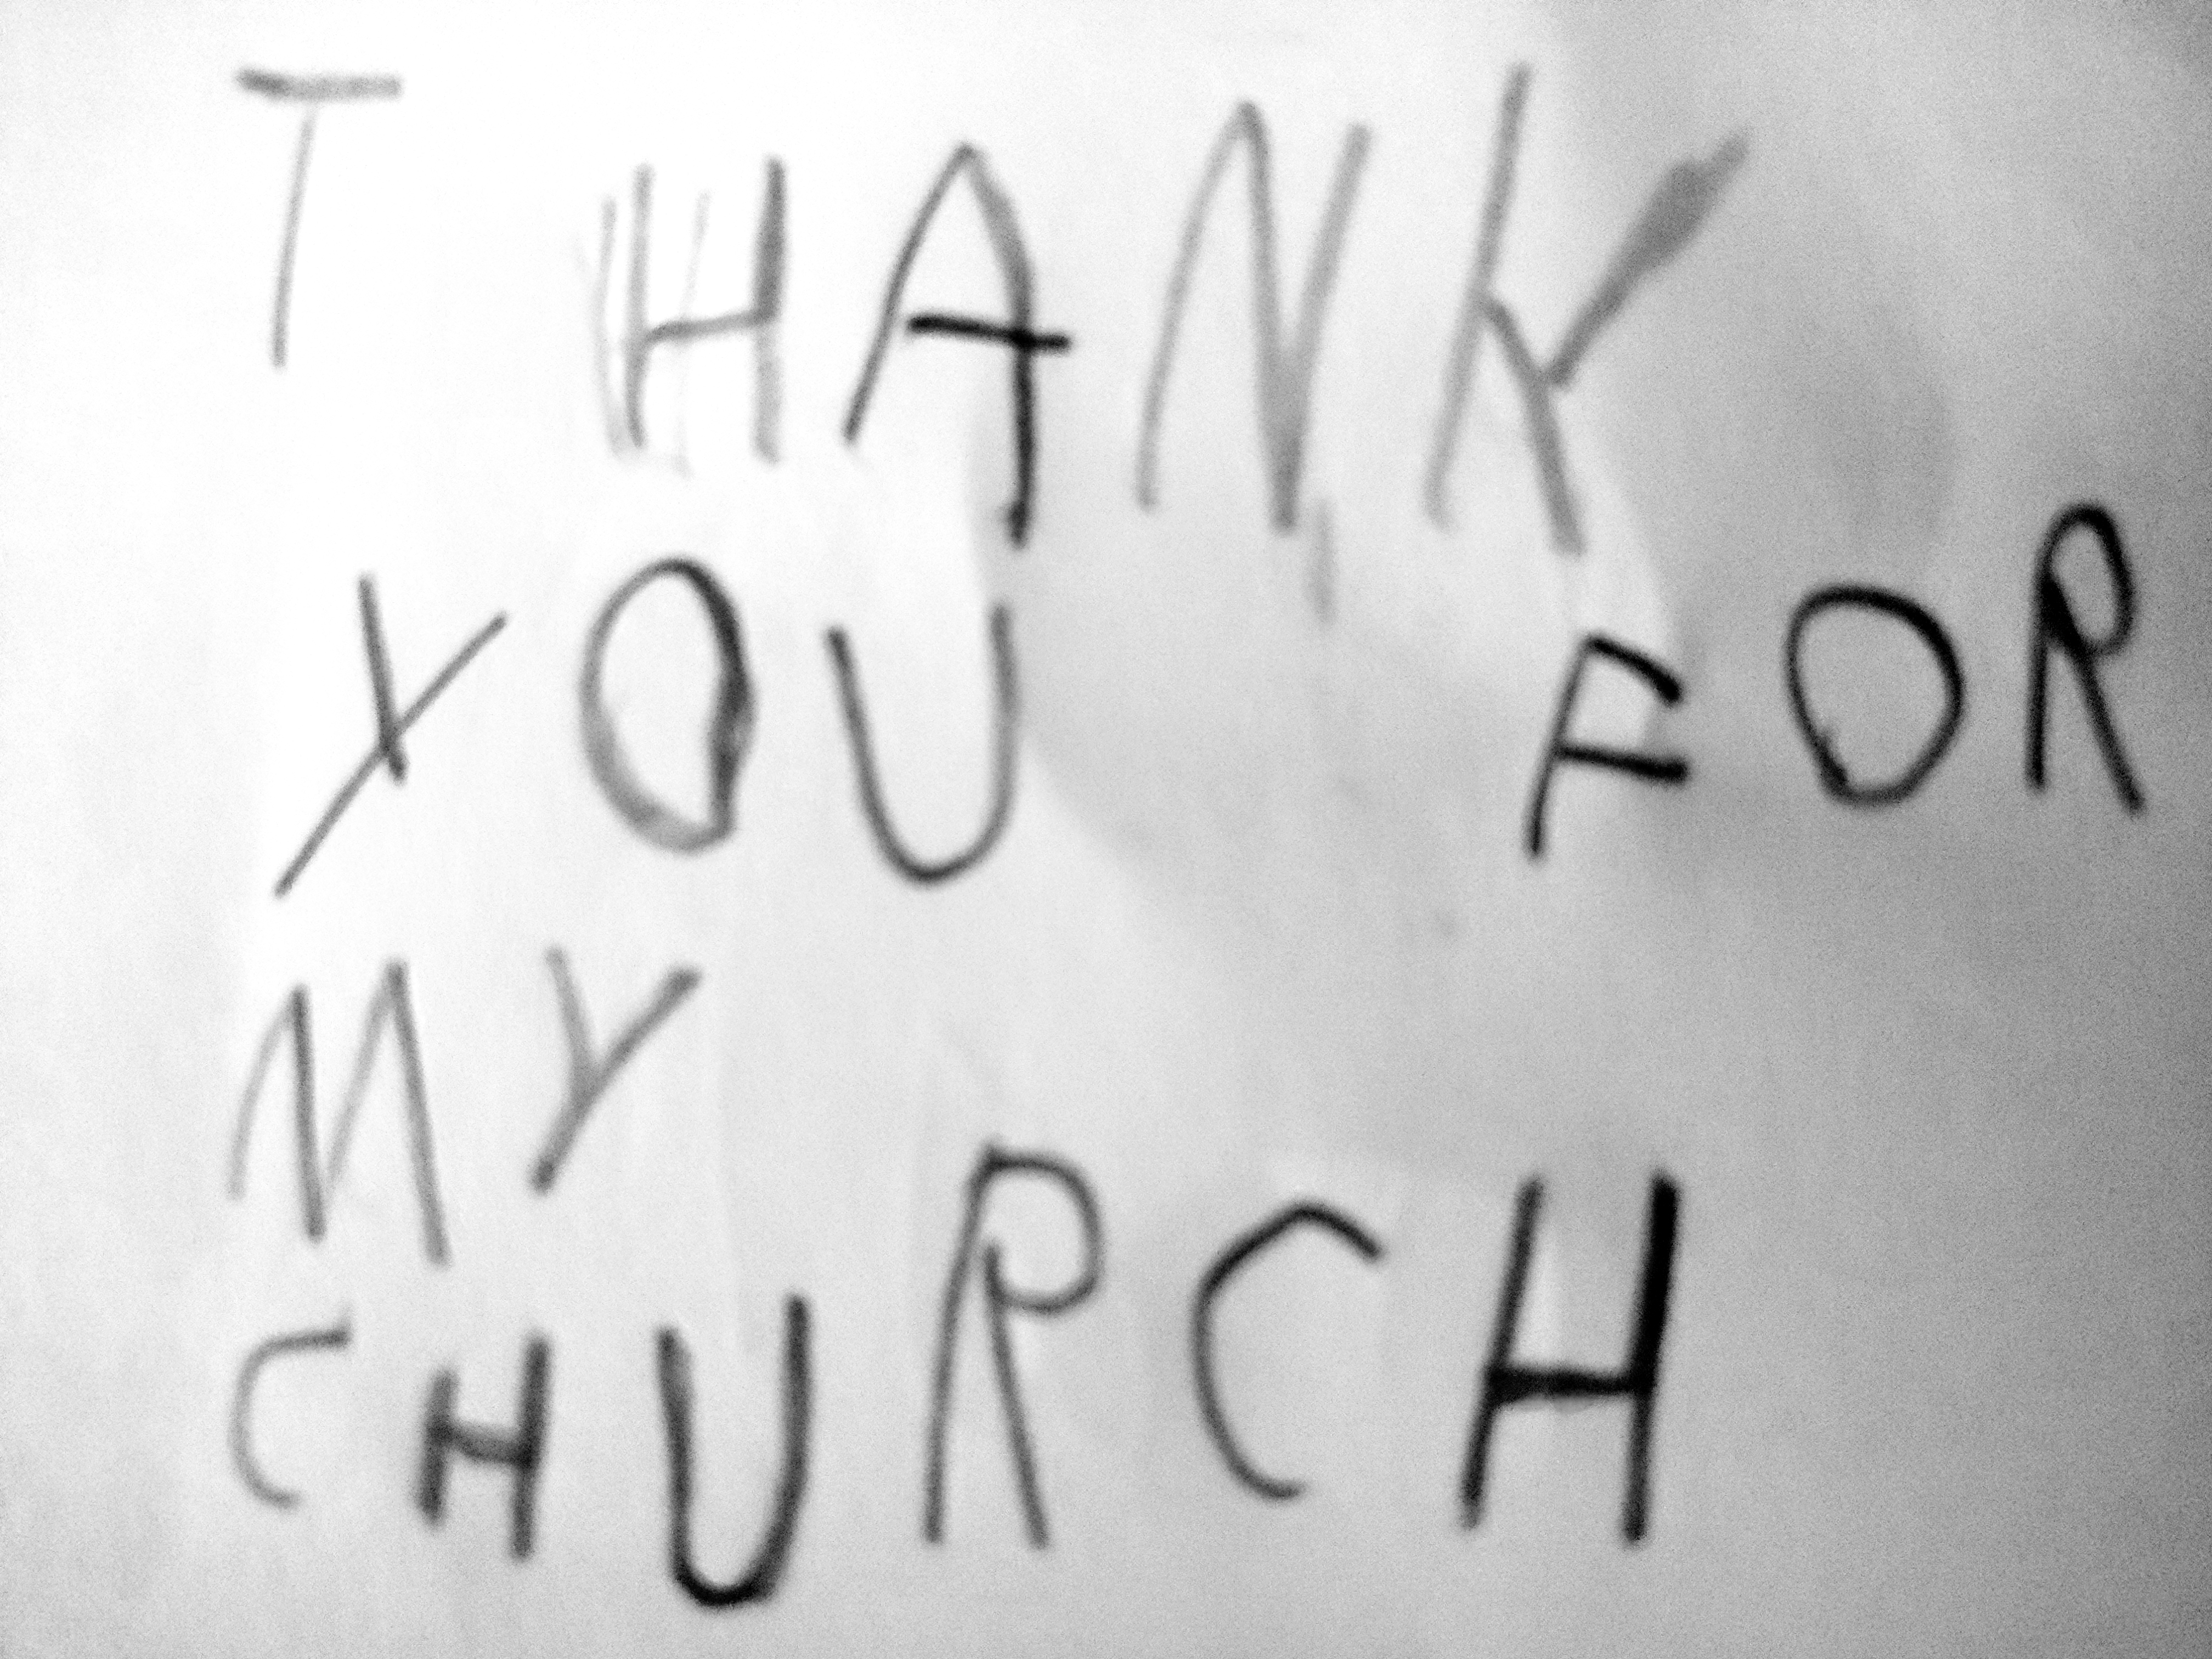 THANK
YOU FOR
MY
CHURCH